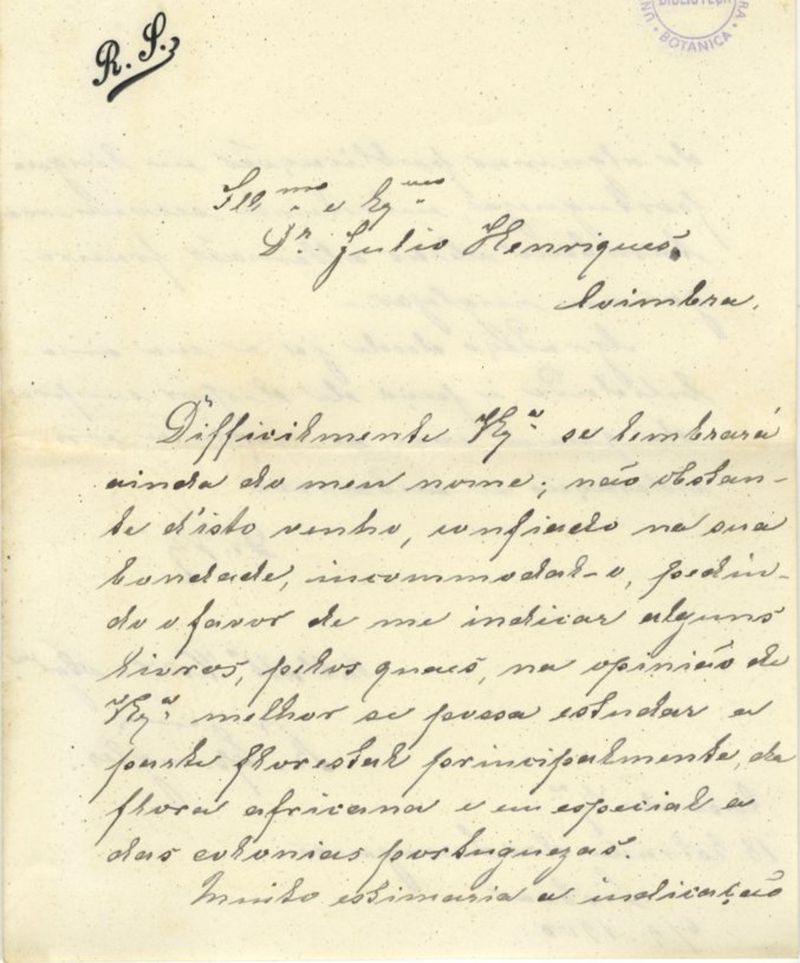 BIBLIOTECA
BOTANICA
R. S.
Illmo e Exmo
Dr. Julio Henriques.
Coimbra.
Difficilmente V Exa se lembrará
ainda do meu nome; não obstan-
te d'isto venho, confiado na sua
bondade, incommodal-o, pedin-
do o favor de me indicar alguns
livros, pelos quaes, na opinião de
V Exa melhor se possa estudar a
parte florestal principalmente, da
flora africana e em especial a
das colonias portuguezas.
Muito estimaria a indicação